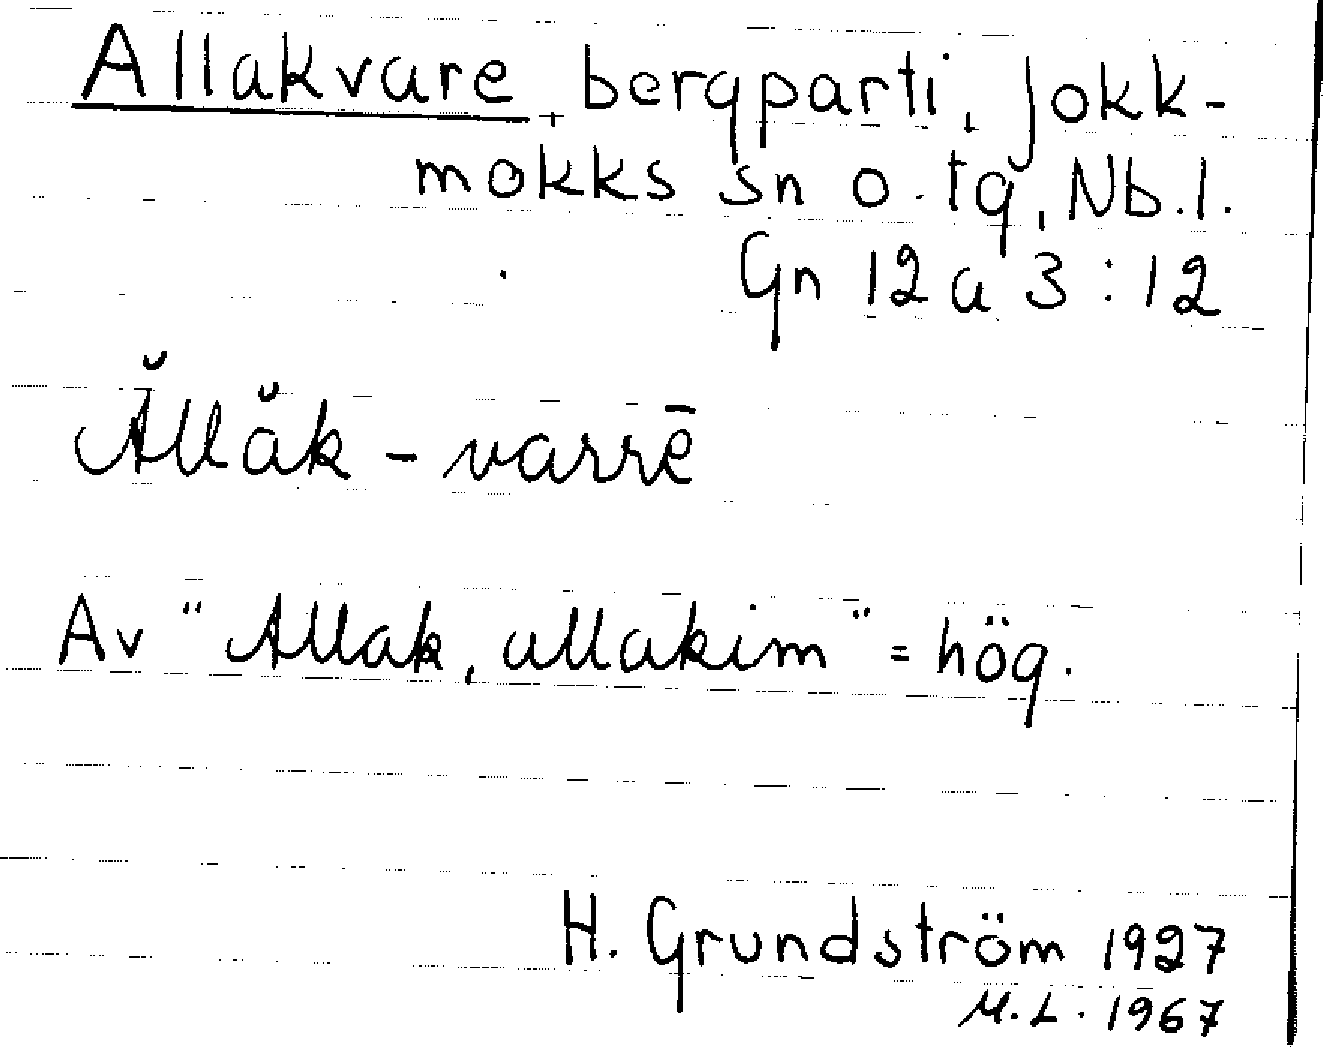 Allakvare, bergparti, Jokk-
mokks sn o. tg, Nb.l.
Gn 12 a 3:12
Ăllăk - varrē
Av "Allak, allakim" = hög.
H. Grundström 1927
M.L. 1967